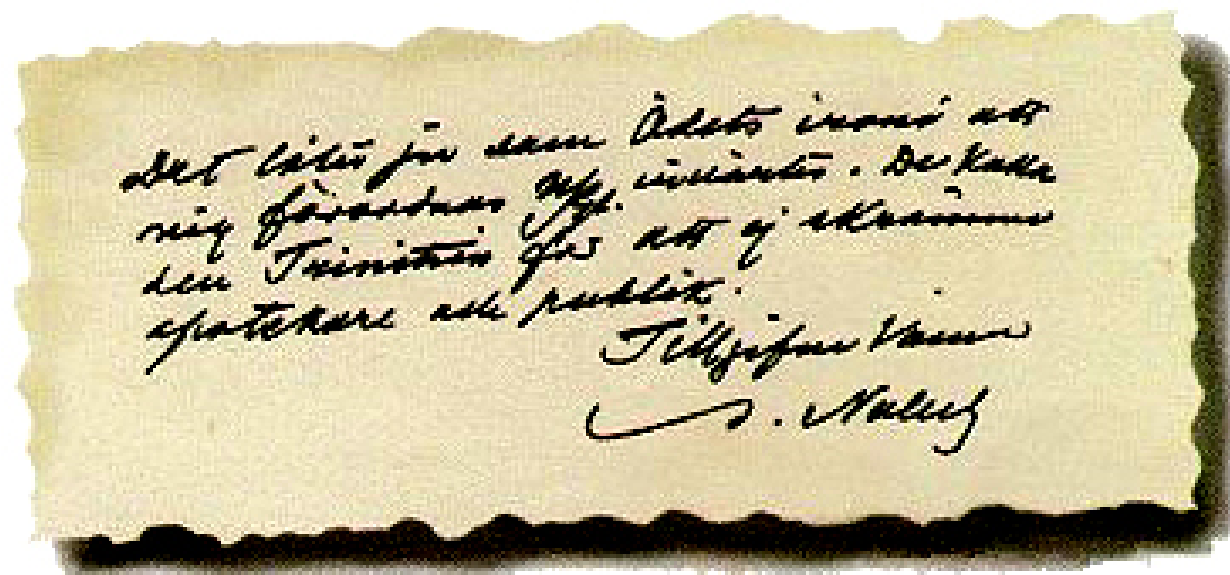 Det låter ju som Ödets ironi att
mig förordnas N/gl. invärtes. De kalla
den Trinitrin för att ej skrämma
apotekare och publik.
Tillgifne Vännen
A. Nobel